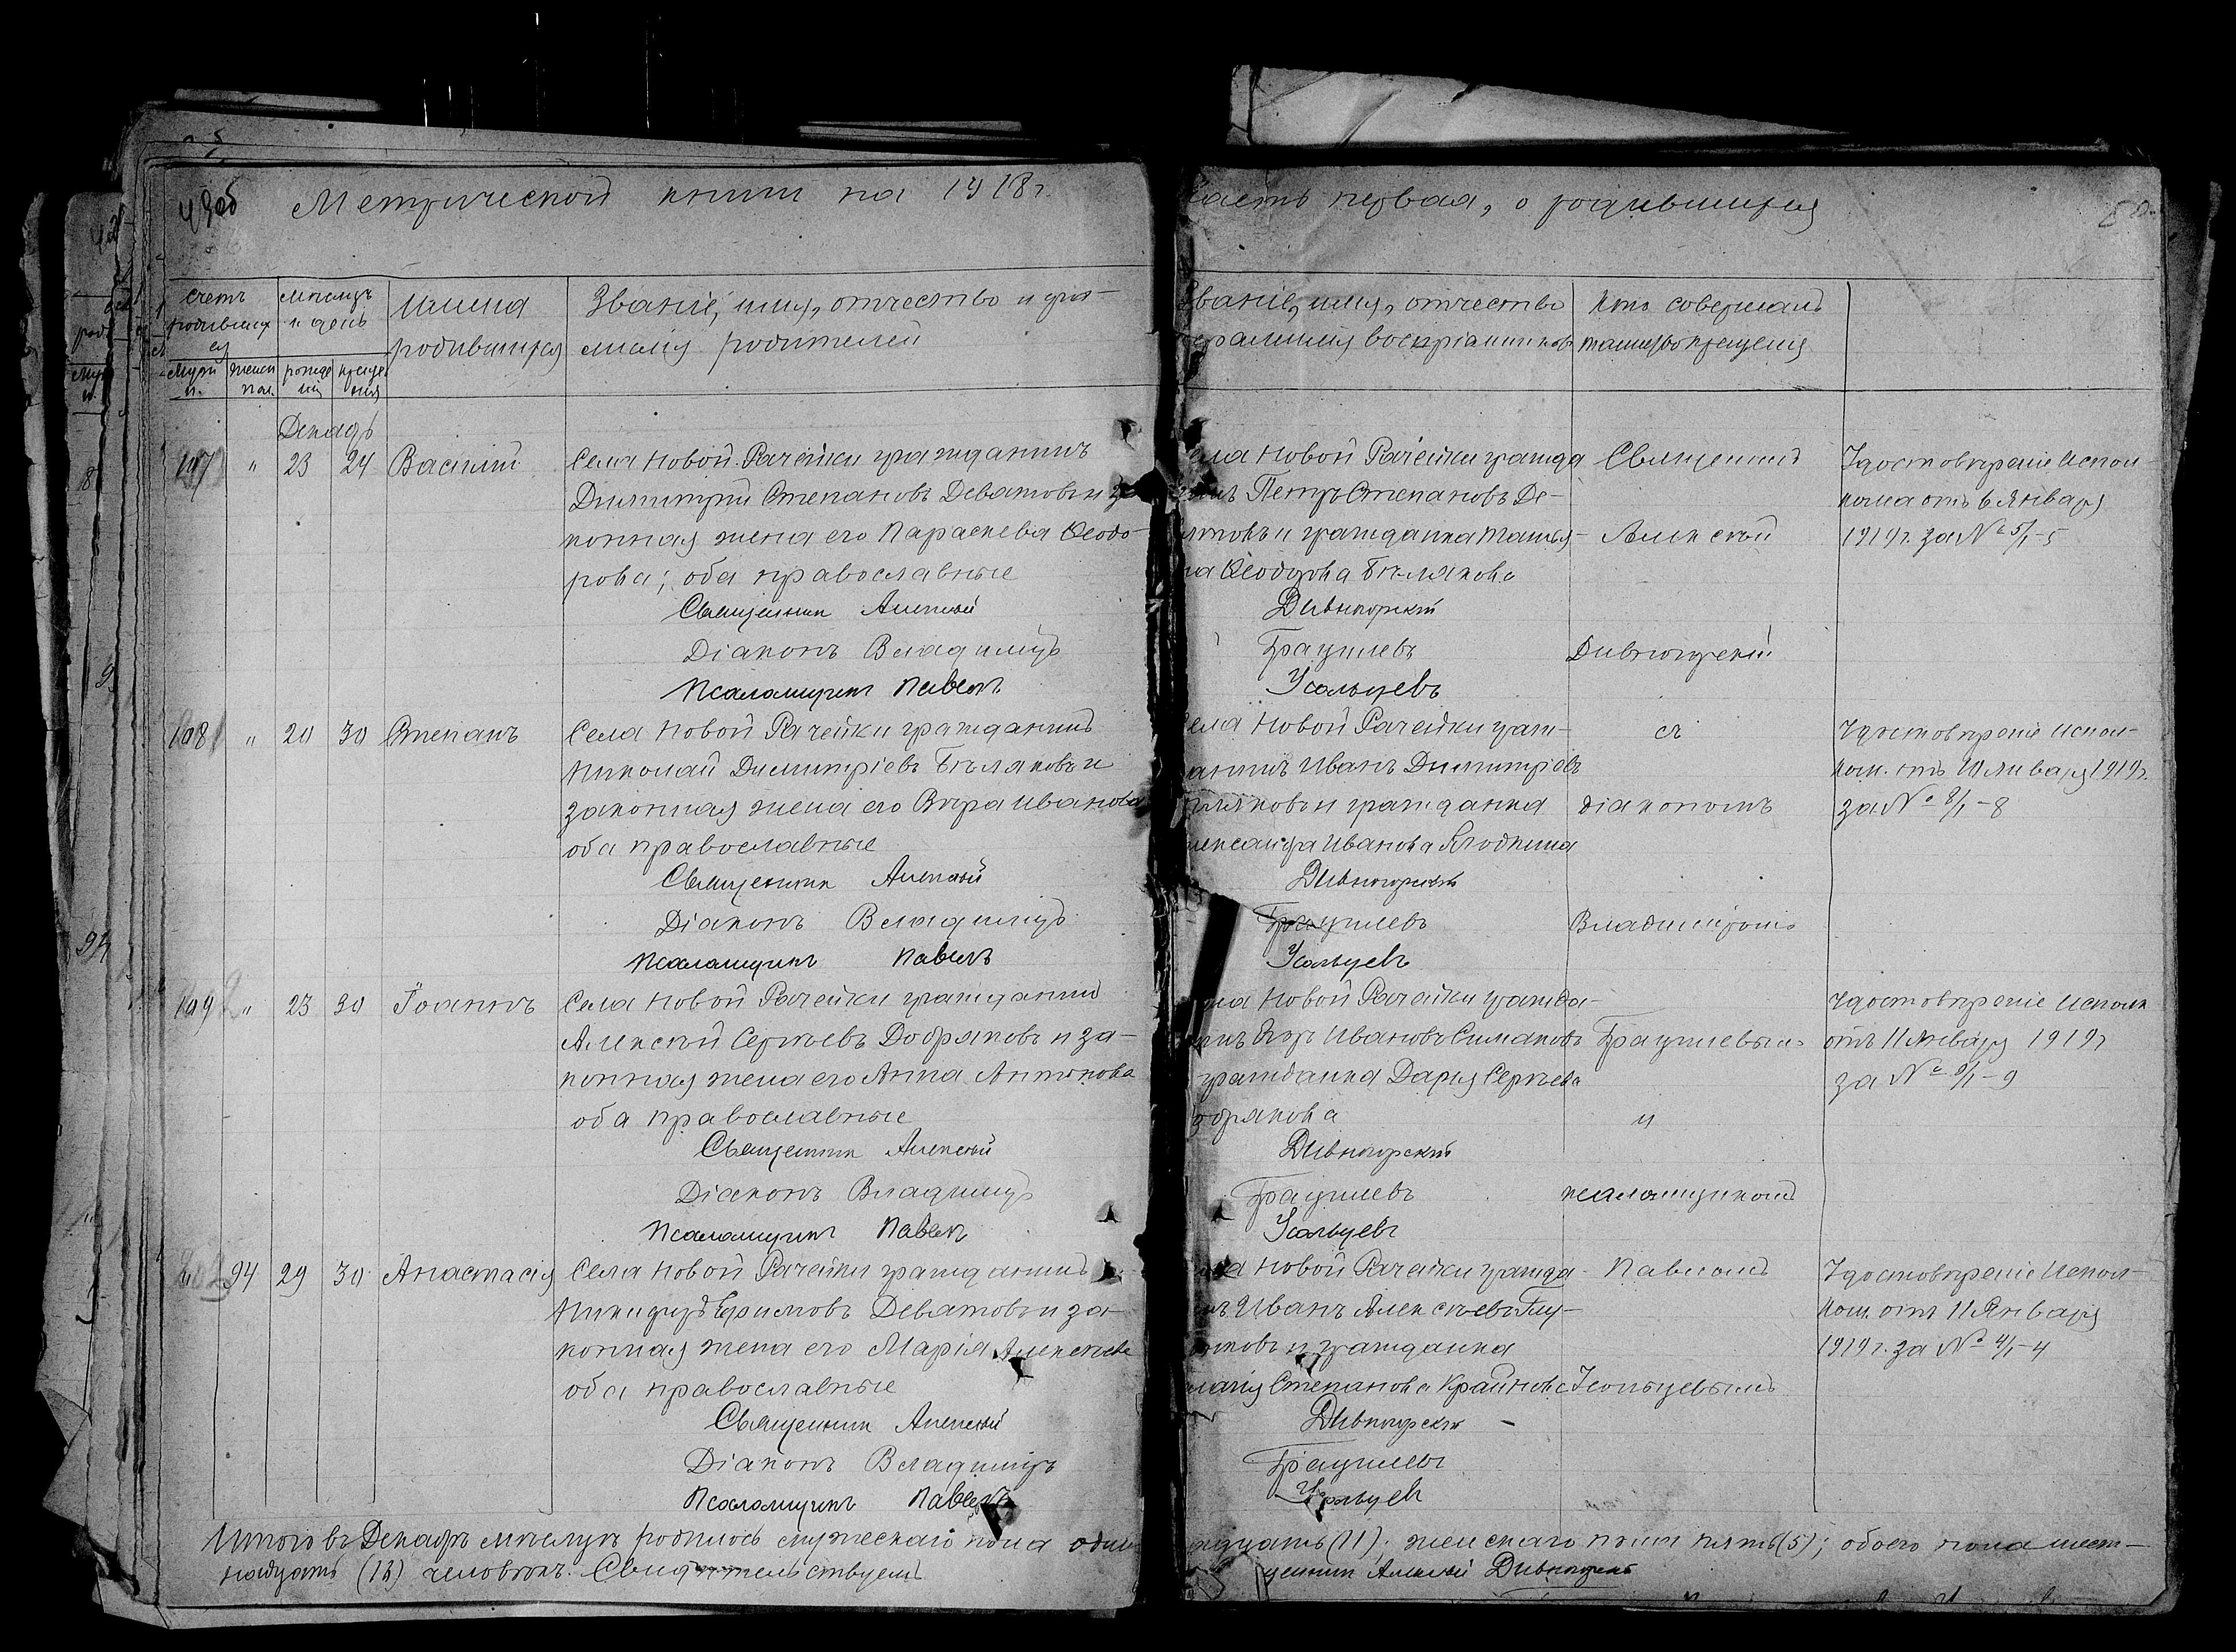 Метрической книги на 1918 г.
часть первая, о родившихся
Счетъ родившихся
Мѣсяцъ и день
Имена родившихся
Званіе, имя, отчество и фамилія родителей
Званіе, имя, отчество и фамилія воспріемниковъ
Кто совершалъ таинство крещенія
Декабрь
107 " 23 24 Василій
Села Новой Рачейки гражданинъ
Димитрій Степановъ Девятовъ и за-
конная жена его Параскева Ѳеодо-
рова; оба православные
Села Новой Рачейки гражда
нинъ Петръ Степановъ Де-
вятовъ и гражданка Татья-
на Ѳеодорова Бѣлякова
Священникъ Алексѣй Дивногорскій
Удостовѣреніе Испол-
кома отъ 6 Января
1919 г. за № 5/1-5
Священникъ Алексѣй Дивногорскій
Діаконъ Владиміръ Грацилевъ
Псаломщикъ Павелъ Усольцевъ
108 " 20 30 Степанъ
Села Новой Рачейки гражданинъ
Николай Димитріевъ Бѣляковъ и
законная жена его Вѣра Иванова
оба православные
Села Новой Рачейки граж-
данинъ Иванъ Димитріевъ
Бѣляковъ и гражданка
Александра Иванова Ягодкина
съ
діакономъ
Владиміромъ
Удостовѣреніе Испол-
ком. отъ 10 Января 1919 г.
за № 8/1-8
Священникъ Алексѣй Дивногорскій
Діаконъ Владиміръ Грацилевъ
Псаломщикъ Павелъ Усольцевъ
109 " 23 30 Іоаннъ
Села Новой Рачейки гражданинъ
Алексѣй Сергѣевъ Добряковъ и за-
конная жена его Анна Антонова
оба православные
Села Новой Рачейки гражда-
нинъ Егоръ Ивановъ Симаковъ
гражданка Дарья Сергѣева
Добрякова
Грацилевымъ
и
псаломщикомъ
Удостовѣреніе Исполк
отъ 11 Января 1919 г
за № 9/1-9
Священникъ Алексѣй Дивногорскій
Діаконъ Владиміръ Грацилевъ
Псаломщикъ Павелъ Усольцевъ
" 94 29 30 Анастасія
Села Новой Рачейки гражданинъ
Никифоръ Ефимовъ Девятовъ и за-
конная жена его Марія Алексѣева
оба православные
Села Новой Рачейки гражда-
нинъ Иванъ Алексѣевъ
и гражданка
Степанова Крайнова
Павломъ
Усольцевымъ
Удостовѣреніе Испол-
ком. отъ 11 Января
1919 г. за № 4/1-4
Священникъ Алексѣй Дивногорскій
Діаконъ Владиміръ Грацилевъ
Псаломщикъ Павелъ Усольцевъ
Итого въ Декабрѣ мѣсяцѣ родилось мужескаго пола одиннадцать (11); женскаго пола пять (5); обоего пола шест-
надцать (16) человѣкъ. Свидѣтельствуемъ Священникъ Алексѣй Дивногорскій